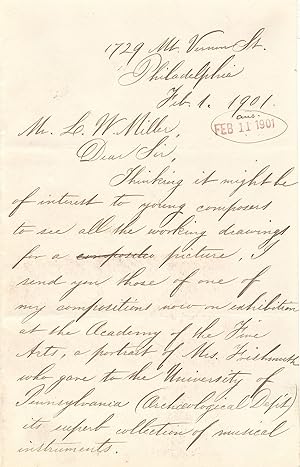 1729 Mt. Vernon St.
Philadelphia
Feb. 1. 1901.
ans.
FEB 11 1901
Mr. L. W. Miller,
Dear Sir,
Thinking it might be
of interest to young composers
to see all the working drawings
for a composed picture, I
send you those of one of
my compositions now on exhibition
at the Academy of the Fine
Arts, a portrait of Mrs. Frishmuth
who gave to the University of
Pennsylvania (Archæological Dept.)
its superb collection of musical
instruments.